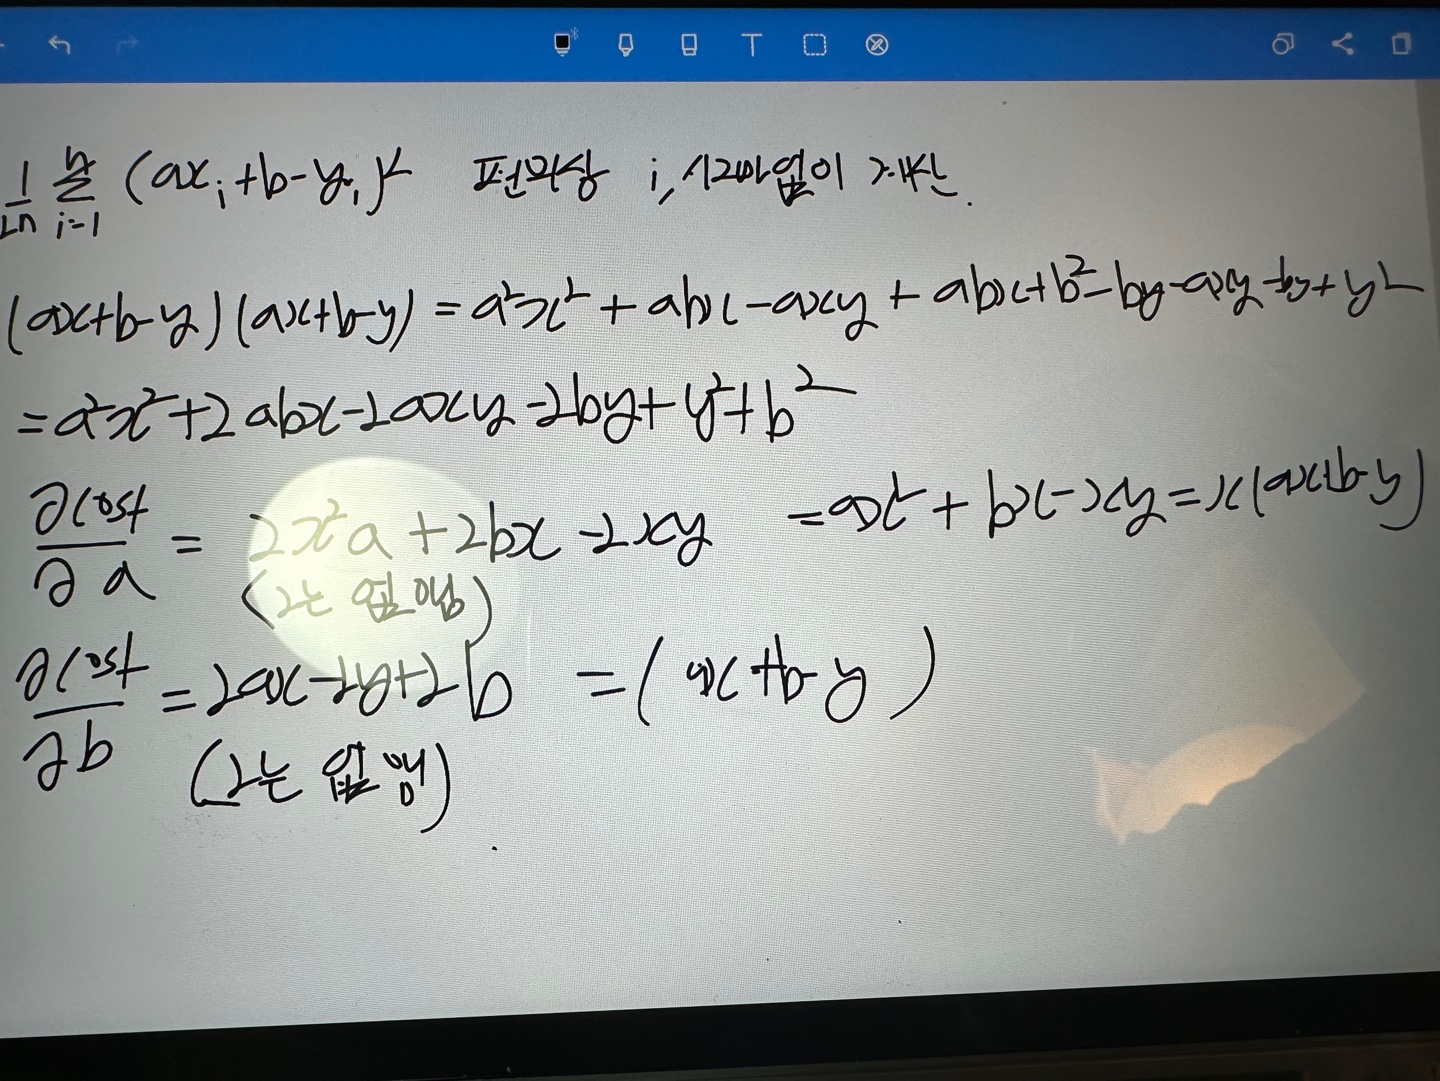 1/2n Σ i=1 n (axᵢ+b-yᵢ)² 편의상 i, 시그마 없이 계산.
(ax+b-y)(ax+b-y) = a²x² + abx - axy + abx + b² - by - axy - by + y²
= a²x² + 2abx - 2axy - 2by + y² + b²
∂cost/∂a = 2x²a + 2bx - 2xy = ax² + bx - xy = x(ax+b-y)
(2는 없앰)
∂cost/∂b = 2ax - 2y + 2b = (ax+b-y)
(2는 없앰)